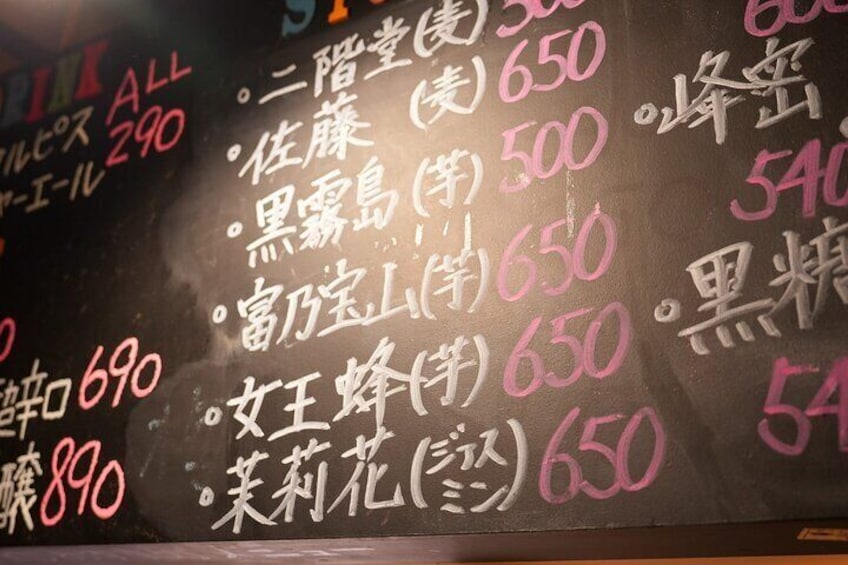 DRINK
ALL
290
ルピス
ャーエール
690
辛口
890
醸
。二階堂(麦) 500
。佐藤 (麦) 650
。黒霧島(芋) 500
。富乃宝山(芋) 650
。女王蜂(芋) 650
。茉莉花(ジャスミン) 650
600
。峰密
540
。黒糖
54